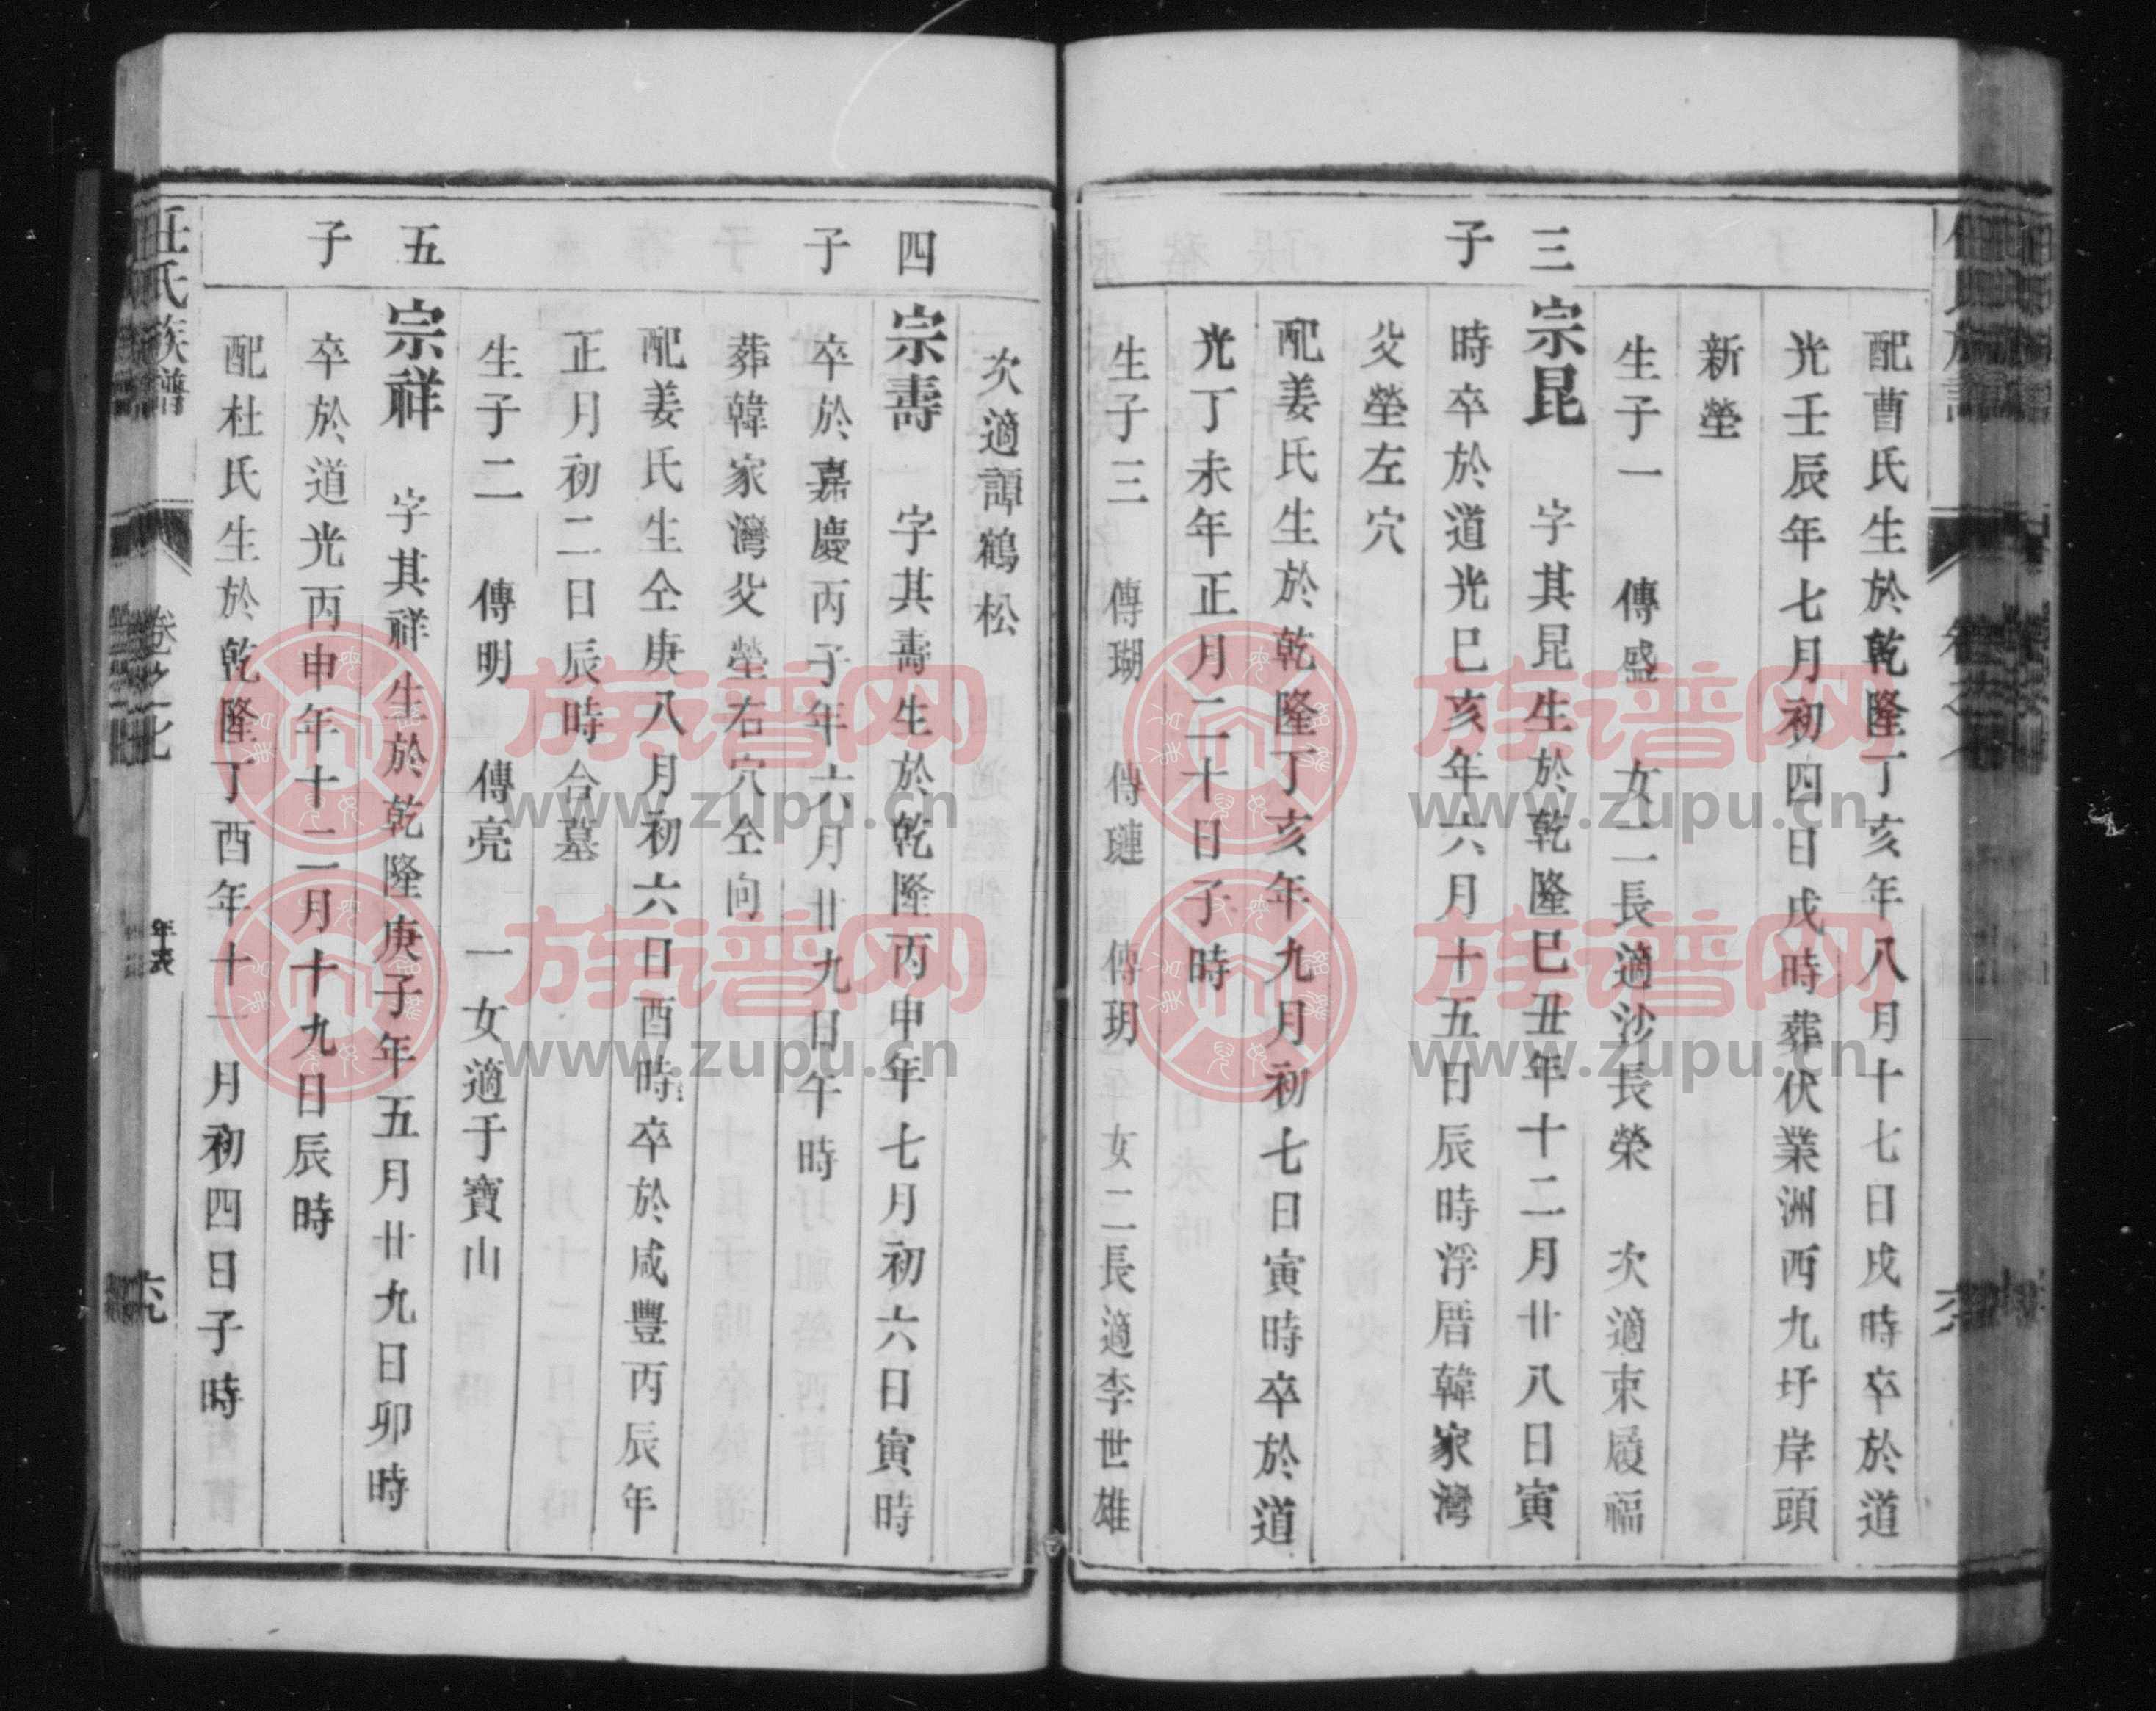 配曹氏生於乾隆丁亥年八月十七日戌時卒於道
光壬辰年七月初四日戌時葬伏業洲西九圩岸頭
新塋
生子一 傳盛 女二長適沙長榮 次適束履福
三子
宗昆 字其昆生於乾隆巳丑年十二月廿八日寅
時卒於道光巳亥年六月十五日辰時浮厝韓家灣
父塋左穴
配姜氏生於乾隆丁亥年九月初七日寅時卒於道
光丁未年正月二十日子時
生子三 傳瑚 傳璉 傳玥 女二長適李世雄
次適譚鶴松
四子
宗壽 字其壽生於乾隆丙申年七月初六日寅時
卒於嘉慶丙子年六月廿九日午時
葬韓家灣父塋右穴仝向
配姜氏生仝庚八月初六日酉時卒於咸豐丙辰年
正月初二日辰時合墓
生子二 傳明 傳亮 一女適于寶山
五子
宗祥 字其祥生於乾隆庚子年五月廿九日卯時
卒於道光丙申年十二月十九日辰時
配杜氏生於乾隆丁酉年十一月初四日子時
氏族譜
卷之七
年表
族谱网
www.zupu.cn
族谱网
www.zupu.cn
族谱网
www.zupu.cn
族谱网
www.zupu.cn